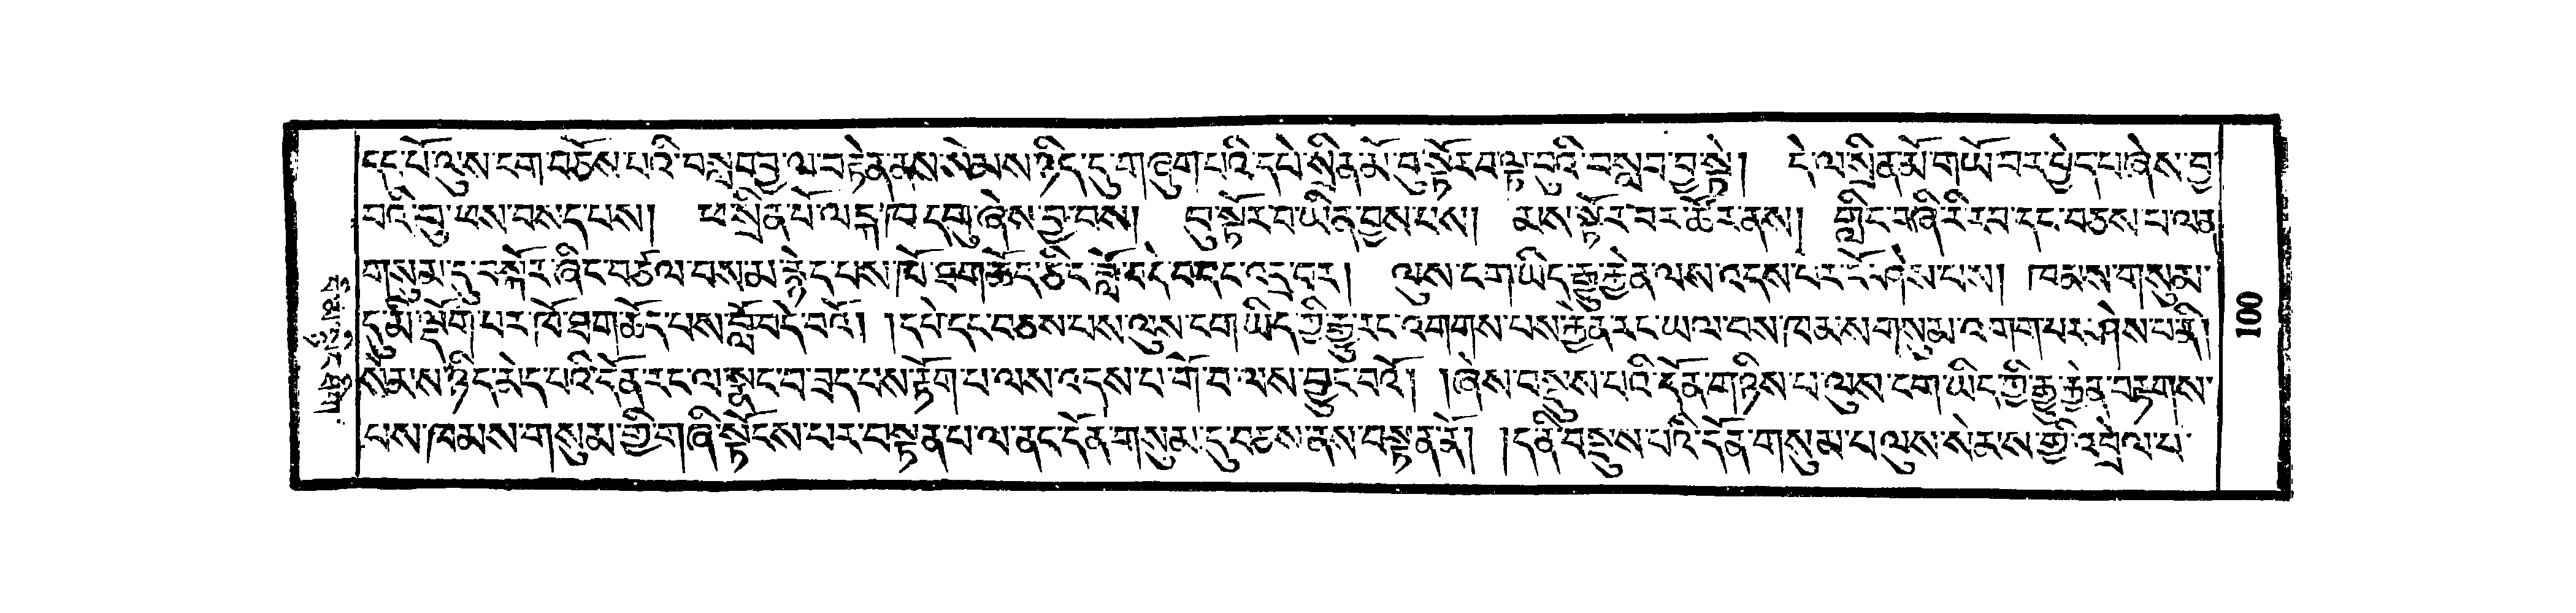 དང་པོ་ལུས་ངག་བཅོས་པའི་བསླབ་བྱ་ལ་བརྟེན་ནས་སེམས་ཉིད་དུ་གཞུག་པའི་དཔེ་སྲིན་མོ་བུ་སྟོར་བ་ལྟ་བུའི་བསླབ་བྱ་སྟེ། དེ་ལ་སྲིན་མོ་གཡོ་བར་བྱེད་པ་ཞེས་བྱ་
བའི་བུ་ཕས་བས་ད་པས། ཕ་སྲིན་པོ་ལང྄ྐ་ཁ་དགུ་ཞེས་བྱ་བས། བུ་སྟོར་བ་ཡིན་བྱས་པས། མས་སྟོར་བར་ཚོར་ནས། གླིང་བཞི་རི་རབ་དང་བཅས་པ་ལན་
གསུམ་དུ་སྐོར་ཞིང་བཙལ་བས་མ་རྙེད་པས་ཁོ་ཐག་ཆོད་ཅིང་བློ་བདེ་བ་དང་འདྲ་བར། ལུས་ངག་ཡིད་རྒྱུ་རྐྱེན་ལས་འདས་པར་ངོ་ཤེས་པས། ཁམས་གསུམ་
དུ་མི་ལྡོག་པར་ཁོ་ཐག་ཆོད་པས་བློ་བདེ་བའོ། །དཔེ་དང་བཅས་པས་ལུས་ངག་ཡིད་ཀྱི་རྒྱུ་རང་འགགས་པས་རྐྱེན་རང་ཡལ་བས་ཁམས་གསུམ་འགག་པར་ཤེས་པ་ནི།
སེམས་ཉིད་མེད་པའི་དོན་རང་ལ་སྣང་བ་བྲད་པས་རྟོག་པ་ལས་འདས་པ་གོ་བ་ལས་བྱུང་བའོ། །ཞེས་བསྡུས་པའི་དོན་གཉིས་པ་ལུས་ངག་ཡིད་ཀྱི་རྒྱུ་རྐྱེན་བརྟགས་
པས་ཁམས་གསུམ་གྱི་གཞི་སྟོངས་པར་བསྟན་པ་ལ་ནང་དོན་གསུམ་དུ་བཅས་ནས་བསྟན་ནོ། །ད་ནི་བསྡུས་པའི་དོན་གསུམ་པ་ལུས་སེམས་གྱི་འབྲེལ་པ་
100